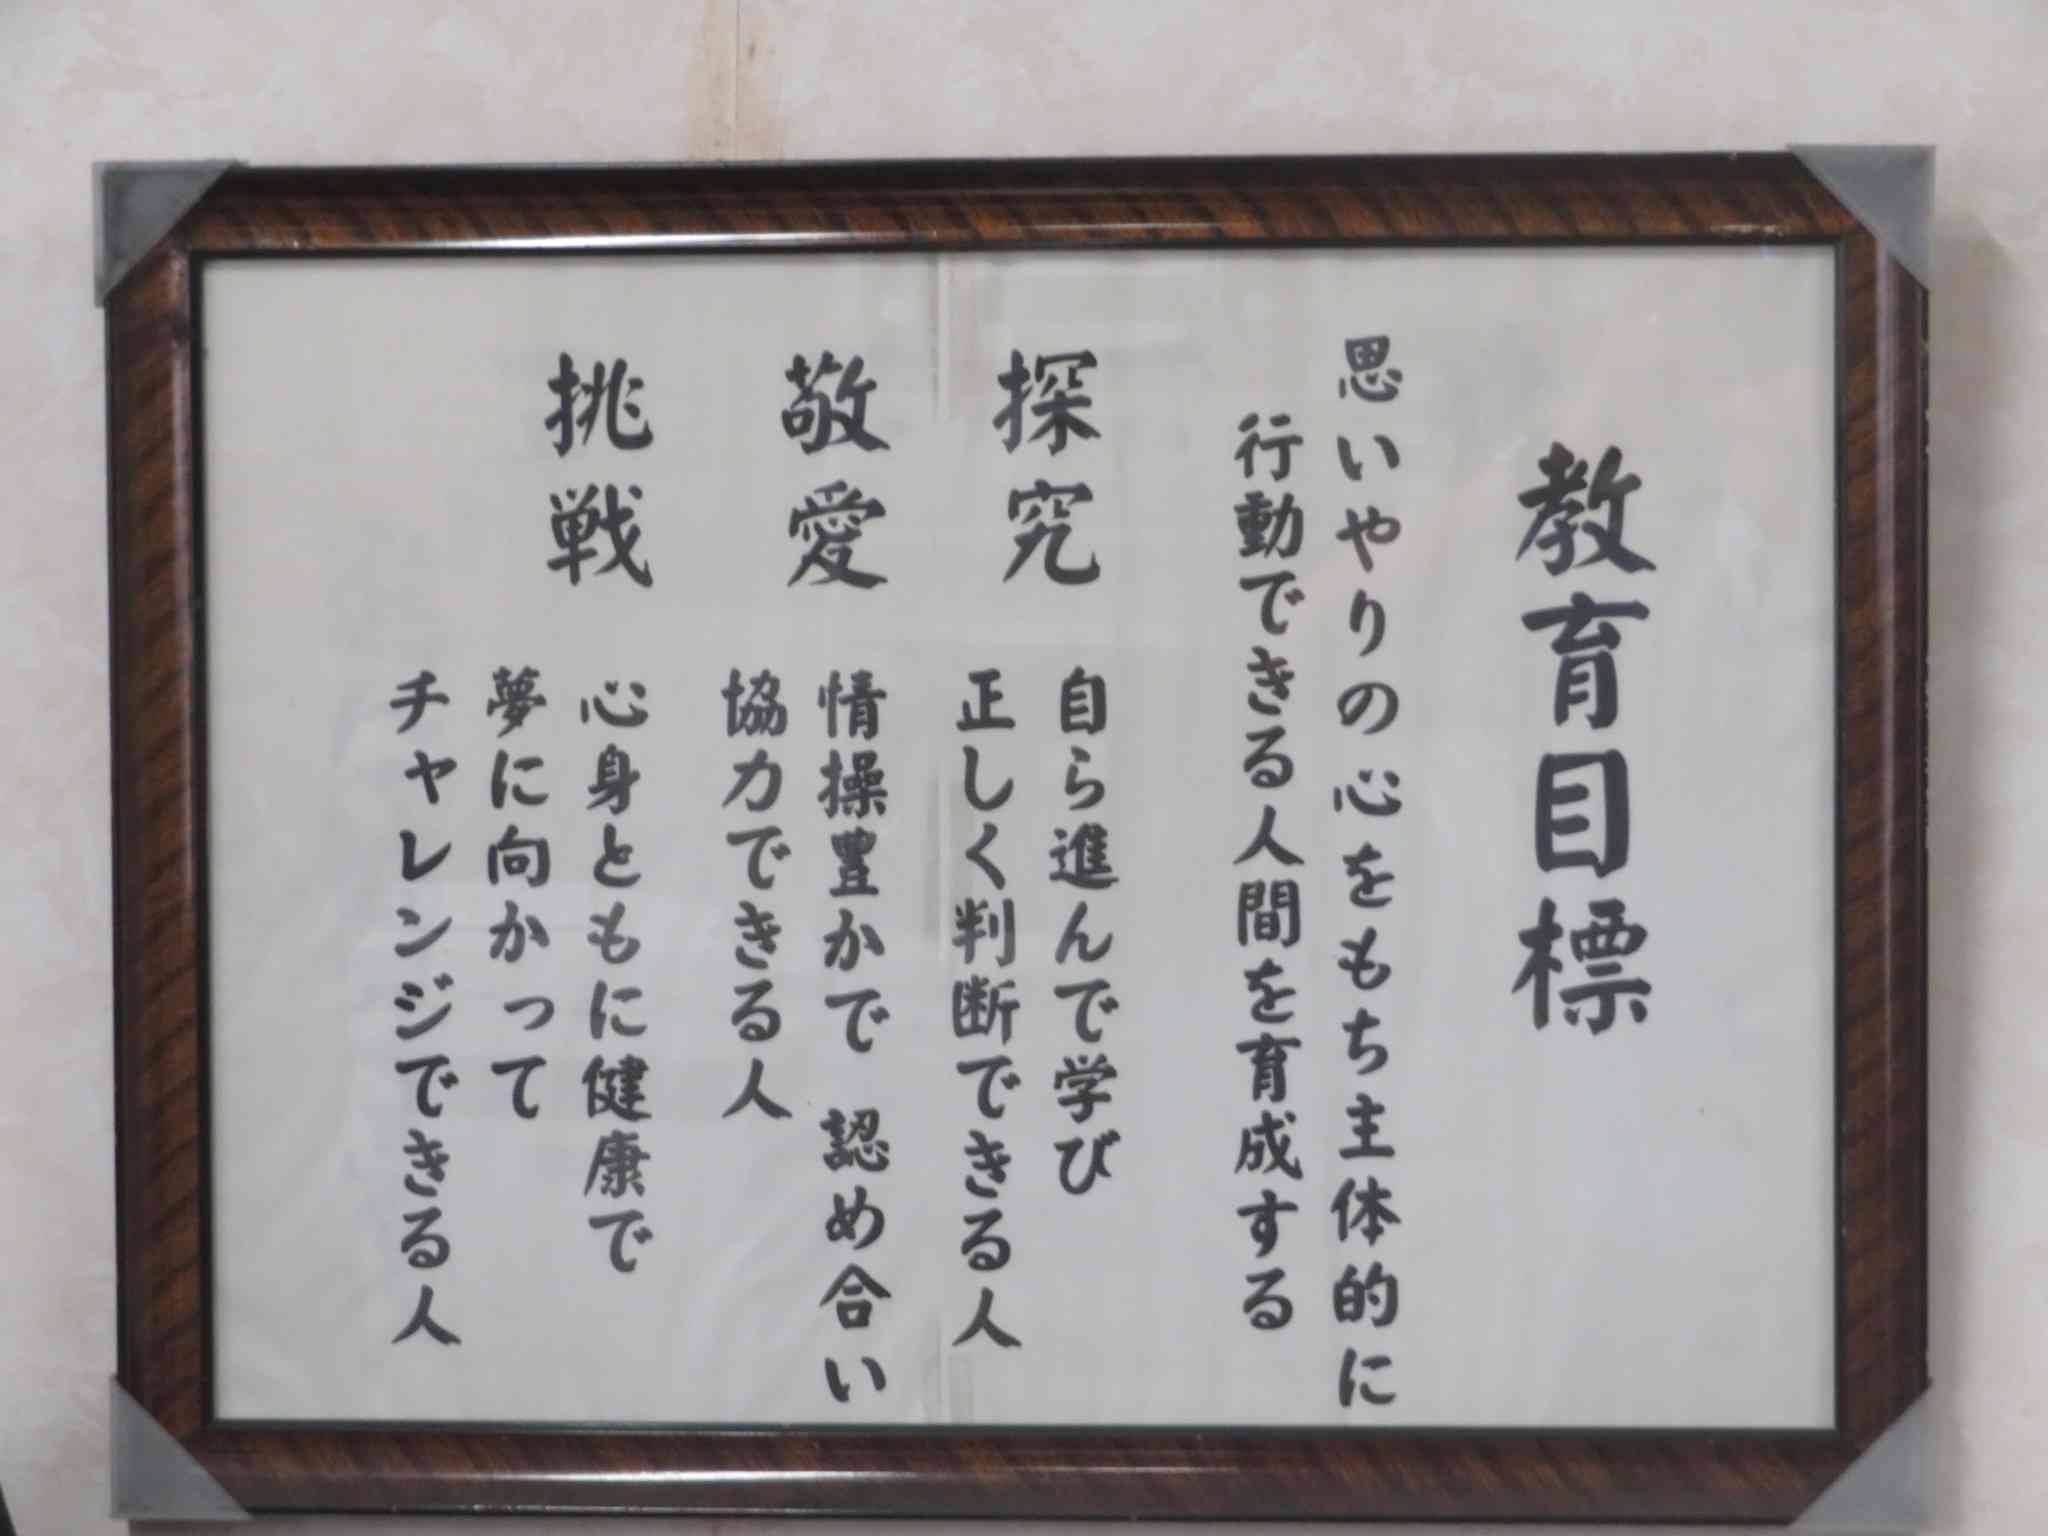 教育目標
思いやりの心をもち主体的に
行動できる人間を育成する
探究
自ら進んで学び
正しく判断できる人
敬愛
情操豊かで 認め合い
協力できる人
挑戦
心身ともに健康で
夢に向かって
チャレンジできる人